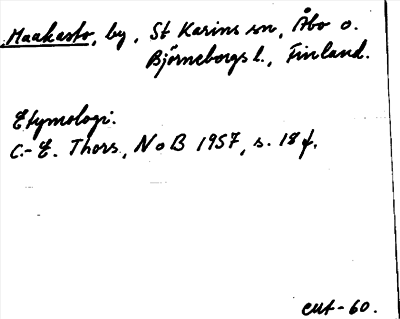 Maakasto, by, St Karins sn, Åbo o.
Björneborgs l., Finland.
Etymologi:
C.-E. Thors, NoB 1957, s. 18 f.
CUT-60.